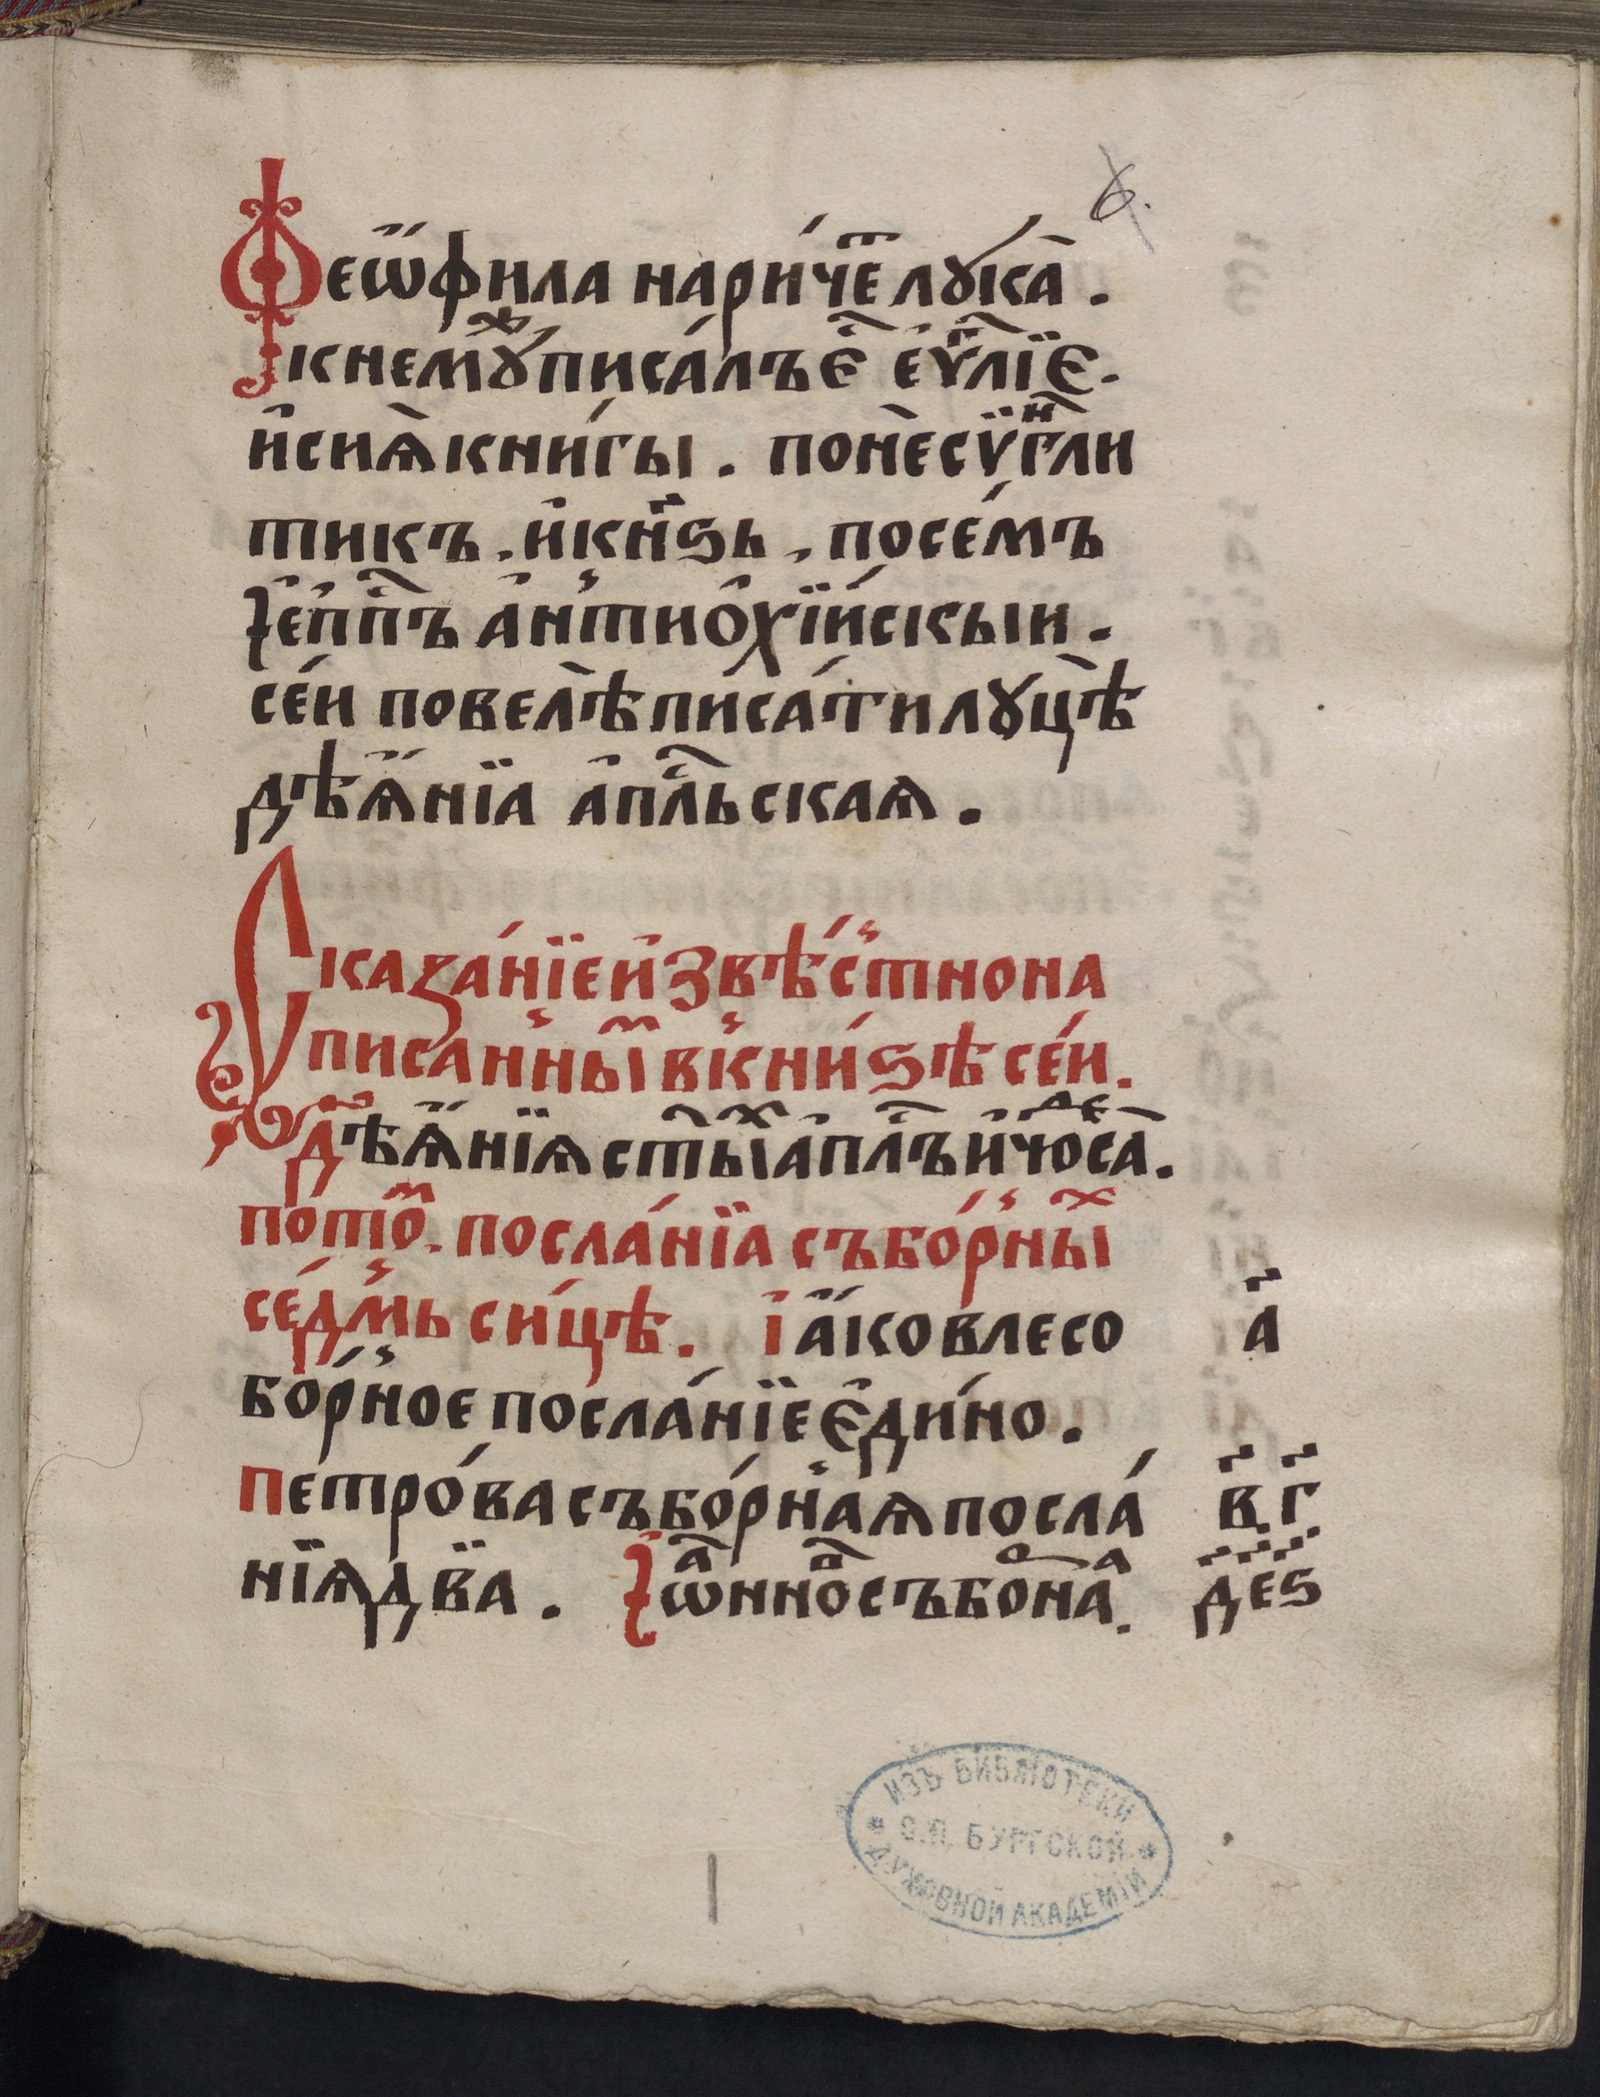 6.
Феѡ҆́фила нари́че҆тъ лꙋка̀ .
к немꙋ́ж писа́лъ є҆̑ є҆ѵⷢ҇лїє .
и҆ сиѧ̀ кни́гы . понѐ сѵ̈гⷩ҇кли
тикъ . и҆ кнѕ҃ь . посе́мъ
і҆ е҆пⷭ҇пъ а҆нтиѻ҆хїи́скыи .
се́и повелѣ̀ писа́ти лꙋцѣ̀
дѣѧ҆́нїа а҆пⷭ҇льскаѧ .
Сказа́нїе и҆звѣ́стно на
писанныⷨ в кни́ѕѣ се́и .
Дѣѧ҆́нїѧ ст҃ыⷯ а҆пⷭ҇лъ и҆ чюⷣеса̀ .
пото́ⷨ . посла́нїа събо́рныⷯ
се́дмь си́цѣ . І҆а҆́ковле со а҃
бо́рное посла́нїе є҆ди́но .
Петро́ва събо́рнаѧ посла́ в҃ г҃
нїѧ два̀ . І҆ѡⷶнноⷡ събоⷬнаа . д҃ е҃ ѕ҃
ИЗЪ БИБЛІОТЕКИ
С.П. БУРГСКОЙ
ДУХОВНОЙ АКАДЕМІИ